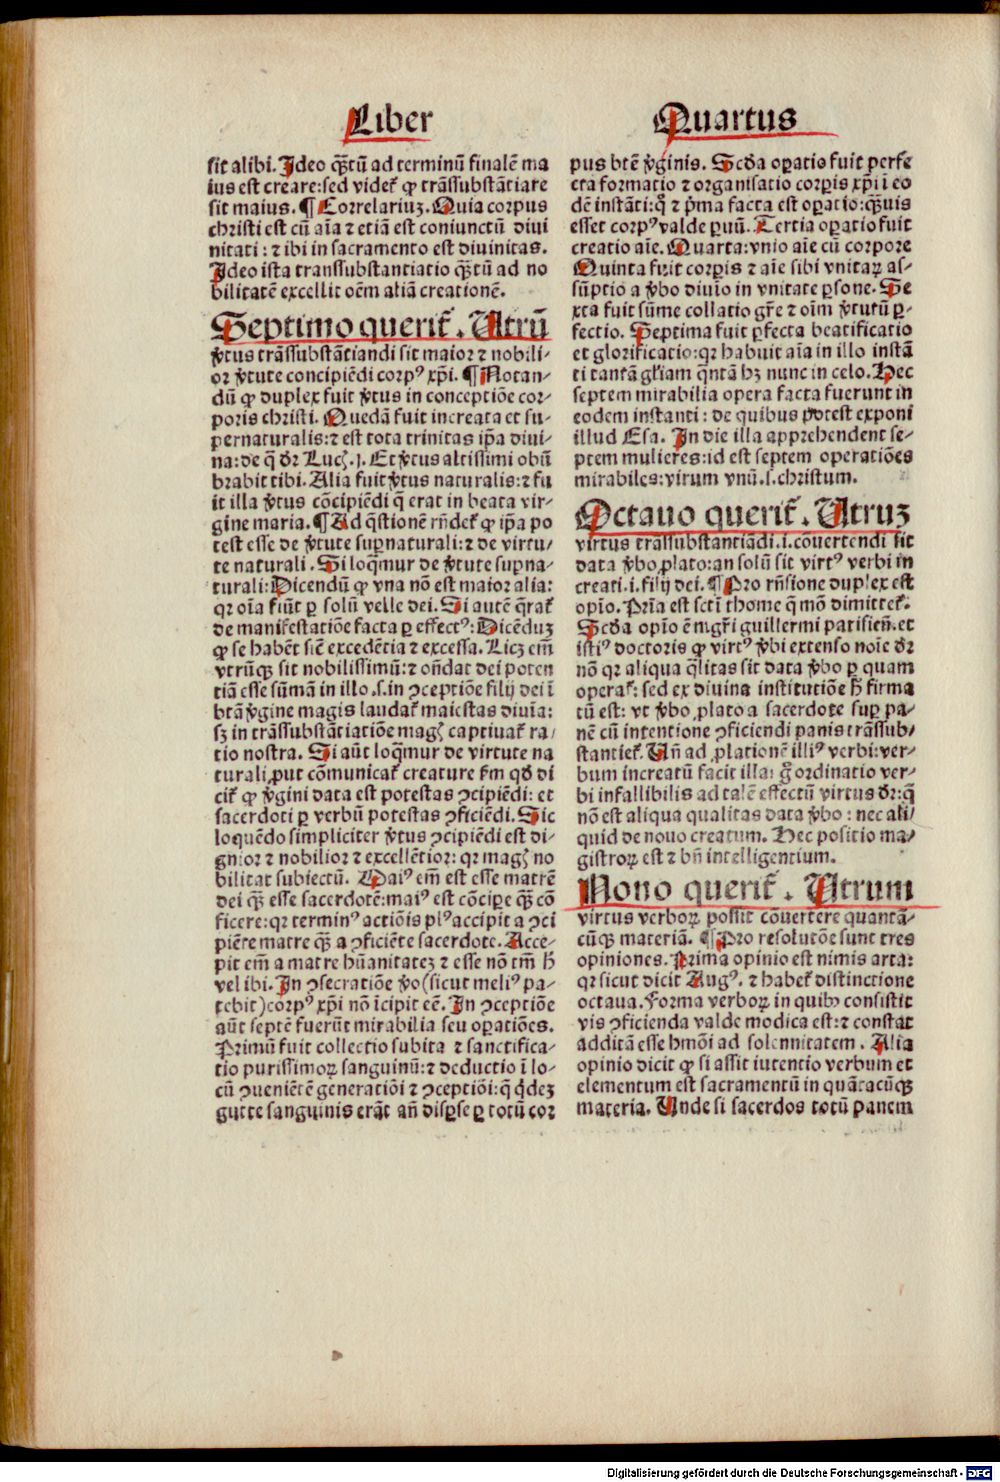 Liber Quartus
sit alibi. Ideo qȝtū ad terminū finalē ma
ius est creare:sed videt᷑ ꝙ trāssubstātiare
sit maius. ¶ Correlariuȝ. Quia corpus
christi est cū aīa ⁊ etiā est coniunctū divi
nitati: ⁊ ibi in sacramento est divinitas.
Ideo ista transsubstantiatio qȝtū ad no
bilitatē excellit oēm aliā creationē.
Septimo querit᷑. Utrū
v̓tus trāssubstātiandi sit maior ⁊ nobili-
or v̓tute concipiēdi corpꝰ xp̄i. ¶ Notan-
dū ꝙ duplex fuit v̓tus in conceptiōe cor-
poris christi. Quedā fuit increata et su-
pernaturalis:⁊ est tota trinitas ip̄a divi-
na:de q̄ dr̄ Luc̄.j. Et v̓tus altissimi obū
brabit tibi. Alia fuit v̓tus naturalis:⁊ fu
it illa v̓tus cōcipiēdi q̄ erat in beata vir-
gine maria. ¶ Ad q̄stionē rn̄det᷑ ꝙ ip̄a po
test esse de v̓tute suꝑnaturali:⁊ de virtu-
te naturali. Si loq̄mur de v̓tute suꝑna-
turali:Dicendū ꝙ vna nō est maior alia:
qꝛ oīa fiūt ꝑ solū velle dei. Si autē q̄rat᷑
de manifestatiōe facta ꝑ effectꝰ:Dicēduȝ
ꝙ se habēt sic̄ excedētia ⁊ excessa. Licȝ em̄
vtrūqȝ sit nobilissimū:⁊ on̄dat dei poten
tiā esse sūmā in illo.s.in ↄceptiōe filij dei ī
btā v̓gine magis laudat᷑ maiestas diuīa:
sȝ in trāssubstātiatiōe maḡ captiuat᷑ ra-
tio nostra. Si aūt loq̄mur de virtute na
turali ꝓut cōmunicat᷑ creature ẜm qd̄ di
cit᷑ ꝙ v̓gini data est potestas ↄcipiēdi: et
sacerdoti ꝑ verbū potestas ↄficiēdi. Sic
loquēdo simpliciter v̓tus ↄcipiēdi est di-
gnior ⁊ nobilior ⁊ excellētior: qꝛ maḡ no
bilitat subiectū. Maiꝰ em̄ est esse matrē
dei qȝ esse sacerdotē:maiꝰ est cōciꝑe qȝ cō
ficere:qꝛ terminꝰ actiōis plꝰ accipit a ↄci
piēte matre qȝ a ↄficiēte sacerdote. Acce-
pit em̄ a matre hūanitateȝ ⁊ esse nō tm̄ h̄
vel ibi. In ↄsecratiōe v̓o(sicut meliꝰ pa-
tebit)corpꝰ xp̄i nō īcipit eē. In ↄceptiōe
aūt septē fuerūt mirabilia seu oꝑatiōes.
Primū fuit collectio subita ⁊ sanctifica-
tio purissimoꝝ sanguinū:⁊ deductio ī lo-
cū ↄueniētē generatiōi ⁊ ↄceptiōi:q̄ q̇deȝ
gutte sanguinis erāt an̄ disꝑse ꝑ totū cor
pus btē v̓ginis. Scd̄a oꝑatio fuit perfe
cta formatio ⁊ organisatio corꝑis xp̄i ī eo
dē instāti:q̄ ⁊ p̓ma facta est oꝑatio:qȝuis
esset corpꝰ valde ꝑuū. Tertia oꝑatio fuit
creatio aīe. Quarta:vnio aīe cū corpore
Quinta fuit corꝑis ⁊ aīe sibi vnitaꝝ as-
sūptio a v̓bo diuīo in vnitate ꝑsone. Se
xta fuit sūme collatio gr̄e ⁊ oīm v̓tutū ꝑ-
fectio. Septima fuit ꝑfecta beatificatio
et glorificatio:qꝛ habuit aīa in illo instā
ti tantā gl̄iam q̄ntā hȝ nunc in celo. Hec
septem mirabilia opera facta fuerunt in
eodem instanti: de quibus potest exponi
illud Esa. In die illa apprehendent se-
ptem mulieres:id est septem operatiōes
mirabiles:virum vnū.s.christum.
Octauo querit᷑. Utruȝ
virtus trāssubstantiādi.i.cōuertendi sit
data v̓bo ꝓlato:an solū sit virtꝰ verbi in
creati.i.filij dei. ¶ Pro rn̄sione duplex est
opīo. Prīa est scti thome q̄ mō dimittet᷑.
Scd̄a opīo ē mgr̄i guillermi parisien̄.et
istiꝰ doctoris ꝙ virtꝰ v̓bi extenso noīe dr̄
nō qꝛ aliqua q̄litas sit data v̓bo ꝑ quam
operat᷑: sed ex diuina institutiōe h̄ firma
tū est: vt v̓bo ꝓlato a sacerdote suꝑ pa-
nē cū intentione ↄficiendi panis trāssub-
stantiet᷑. Un̄ ad ꝓlationē illiꝰ verbi:ver-
bum increatū facit illa: g̊ ordinatio ver-
bi infallibilis ad talē effectū virtus dr̄:q̄
nō est aliqua qualitas data v̓bo: nec ali
quid de nouo creatum. Hec positio ma-
gistroꝝ est ⁊ bn̄ intelligentium.
Nono querit᷑. Utrum
virtus verboꝝ possit cōuertere quantā-
cūqȝ materiā. ¶ Pro resolutōe sunt tres
opiniones. Prima opinio est nimis arta:
qꝛ sicut dicit Augꝰ. ⁊ habet᷑ distinctione
octaua. Forma verboꝝ in quibȝ consistit
vis ↄficienda valde modica est:⁊ constat
additā esse hmōi ad solennitatem. Alia
opinio dicit ꝙ si assit intentio verbum et
elementum est sacramentū in quātacūqȝ
materia. Unde si sacerdos totū panem
Digitalisierung gefördert durch die Deutsche Forschungsgemeinschaft - DFG